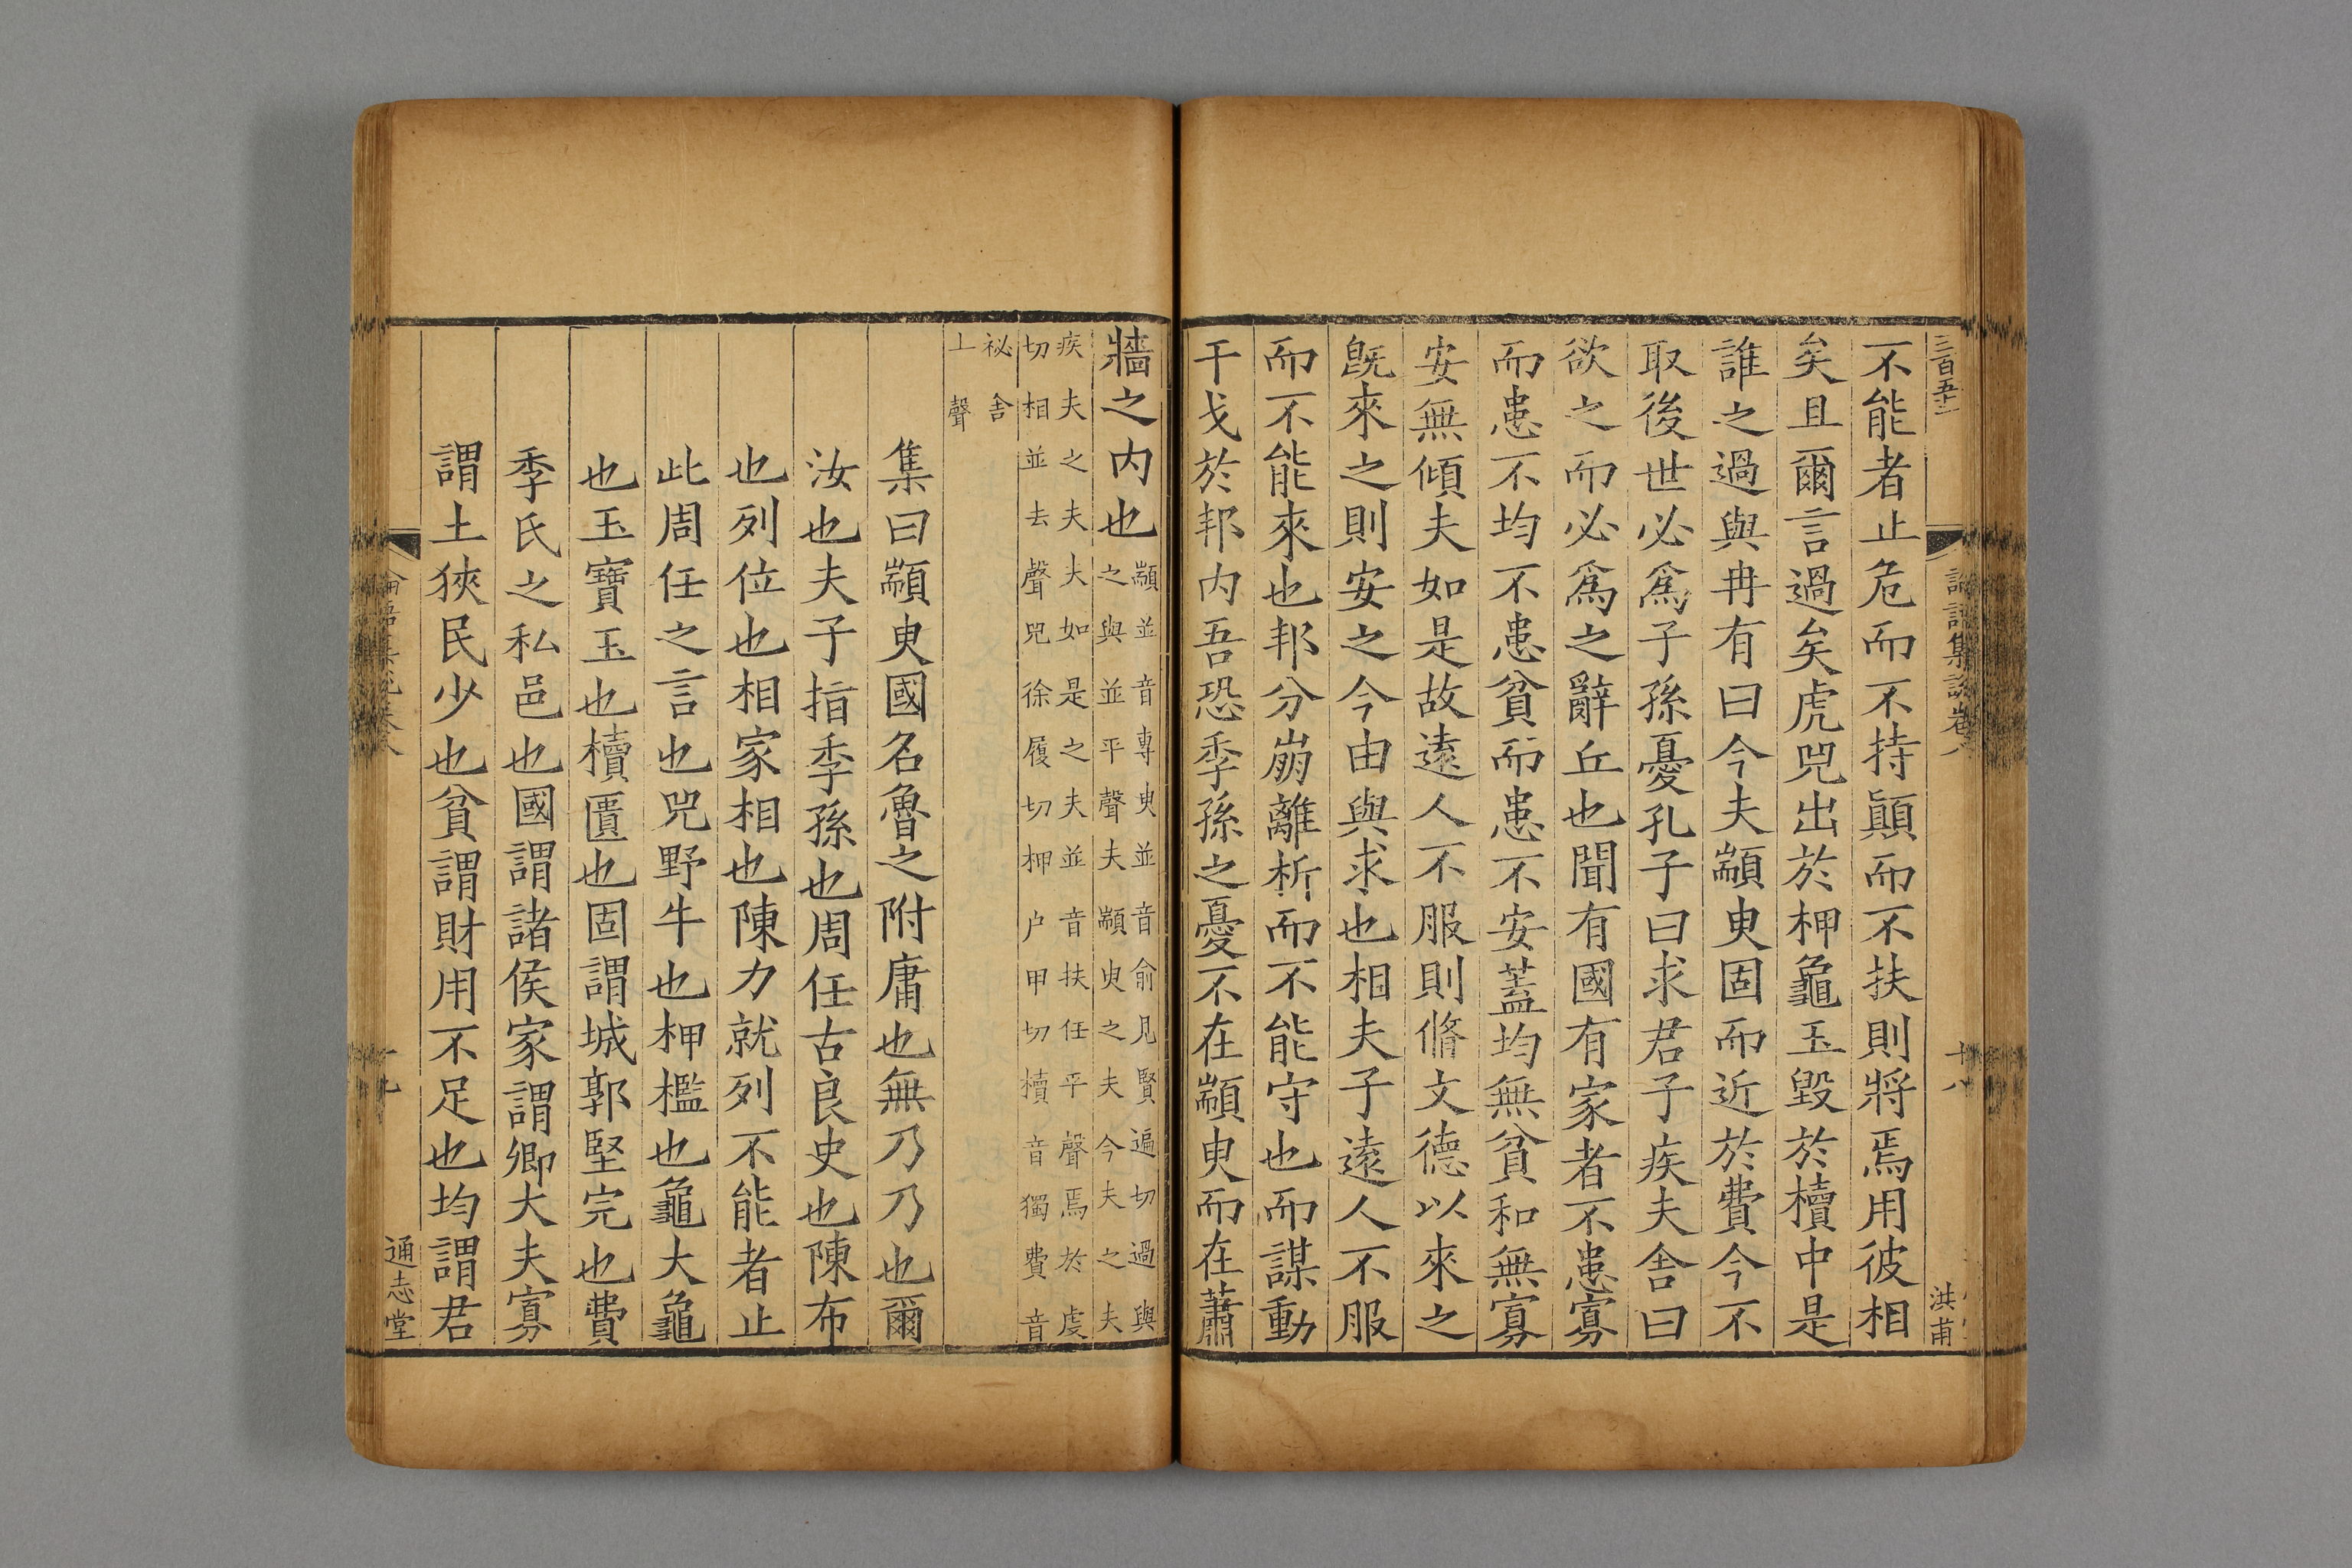 三百五十二
論語集說卷八
十八
洪甫
不能者止危而不持顚而不扶則將焉用彼相
矣且爾言過矣虎兕出於柙龜玉毀於櫝中是
誰之過與冉有曰今夫顓臾固而近於費今不
取後世必爲子孫憂孔子曰求君子疾夫舍曰
欲之而必爲之辭丘也聞有國有家者不患寡
而患不均不患貧而患不安蓋均無貧和無寡
安無傾夫如是故遠人不服則脩文德以來之
旣來之則安之今由與求也相夫子遠人不服
而不能來也邦分崩離析而不能守也而謀動
干戈於邦内吾恐季孫之憂不在顓臾而在蕭
牆之内也
顓並音專臾並音俞見賢遍切過與
之與並平聲夫顓臾之夫今夫之夫
疾夫之夫夫如是之夫並音扶任平聲焉於虔
切相並去聲兕徐履切柙户甲切櫝音獨費音
祕舍
上聲
集曰顓臾國名魯之附庸也無乃乃也爾
汝也夫子指季孫也周任古良史也陳布
也列位也相家相也陳力就列不能者止
此周任之言也兕野牛也柙檻也龜大龜
也玉寶玉也櫝匱也固謂城郭堅完也費
季氏之私邑也國謂諸侯家謂卿大夫寡
謂土狹民少也貧謂財用不足也均謂君
論語集說卷八
十九
通志堂